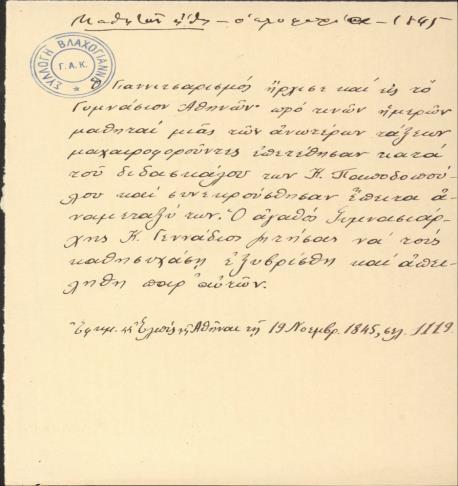 Μαθητῶν ἤθη – – 1845
ΣΥΛΛΟΓΗ ΒΛΑΧΟΓΙΑΝΝΗ
Γ.Α.Κ.
Ὁ Γιαννιτσαρισμός ἤρχισε καί εἰς τό
Γυμνάσιον Ἀθηνῶν· πρό τινῶν ἡμερῶν
μαθηταί μιᾶς τῶν ἀνωτέρων τάξεων
μαχαιροφοροῦντες ἐπετέθησαν κατά
τοῦ διδασκάλου των Κ. Παπαδοπού-
λου καί συνεκρούσθησαν ἔπειτα ἀ-
ναμεταξύ των. Ὁ ἀγαθός Γυμνασιάρ-
χης Κ. Γεννάδιος ζητήσας νά τούς
καθησυχάσῃ ἐξυβρίσθη καί ἀπει-
λήθη παρ' αὐτῶν.
Ἐφημ. "Ἐλπίς" Ἀθῆναι τῇ 19 Νοεμβρ. 1845, σελ. 1119.